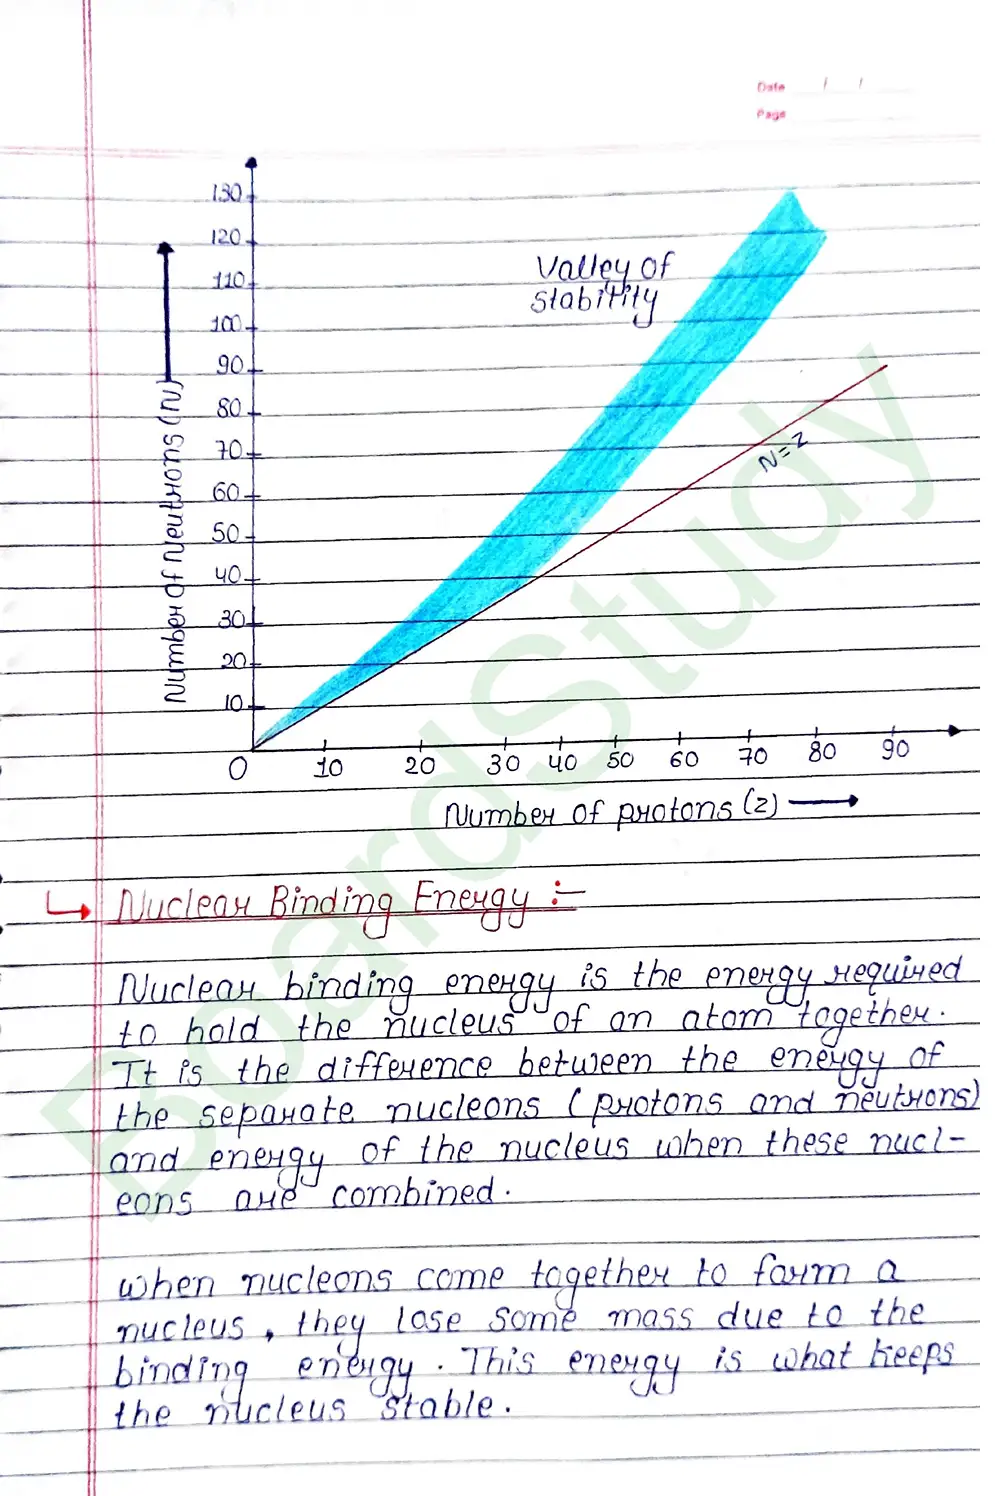 Date / /
Page
130
120
110
100
90
80
70
60
50
40
30
20
10
Number of Neutrons (N)
Valley of
Stability
N=Z
0 10 20 30 40 50 60 70 80 90
Number of protons (z)
BoardStudy
Nuclear Binding Energy :-
Nuclear binding energy is the energy required
to hold the nucleus of an atom together.
It is the difference between the energy of
the separate nucleons (protons and neutrons)
and energy of the nucleus when these nucl-
eons are combined.
when nucleons come together to form a
nucleus, they lose some mass due to the
binding energy. This energy is what keeps
the nucleus stable.